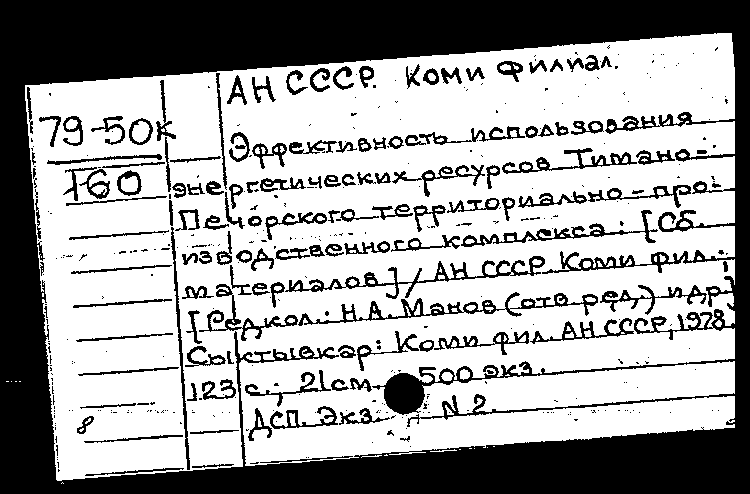 АН СССР. Коми филиал.
79-50к
160
Эффективность использования
энергетических ресурсов Тимано-
Печорского территориально-про-
изводственного комплекса: [Сб.
материалов] / АН СССР. Коми фил.;
[Редкол.: Н.А. Манов (отв. ред.) и др.]
Сыктывкар: Коми фил. АН СССР, 1978.
123 с.; 21 см. 500 экз.
ДСП. Экз. N 2.
8